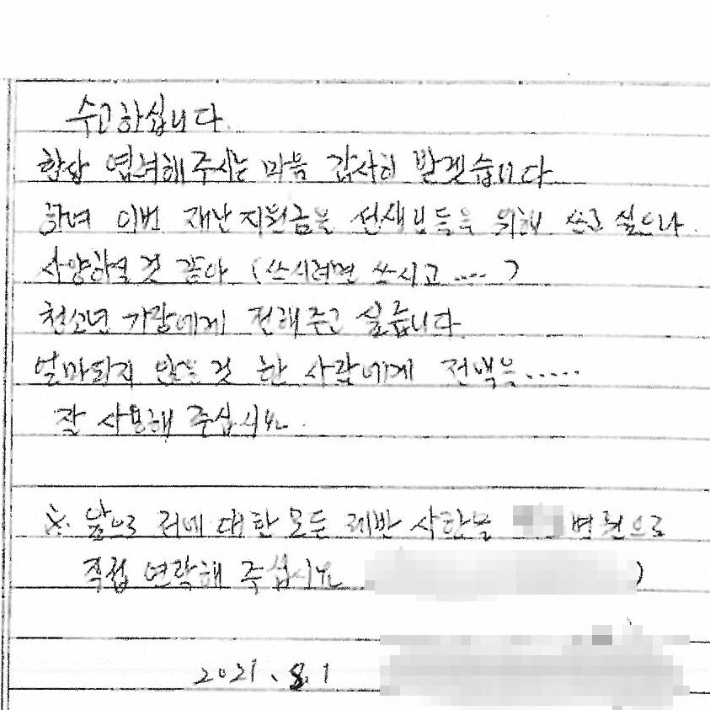 수고하십니다.
항상 염려해주시는 마음 감사히 받겠습니다
하여 이번 재난지원금을 선생님들을 위해 쓰고 싶으나
사양하실 것 같아 (쓰시려면 쓰시고....)
청소년 가장에게 전해주고 싶습니다
얼마되지 않는 것 한 사람에게 전액을.....
잘 사용해 주십시오.
※ 앞으로 저에 대한 모든 제반 사안을 병원으로
직접 연락해 주십시오 )
2021. 8. 1